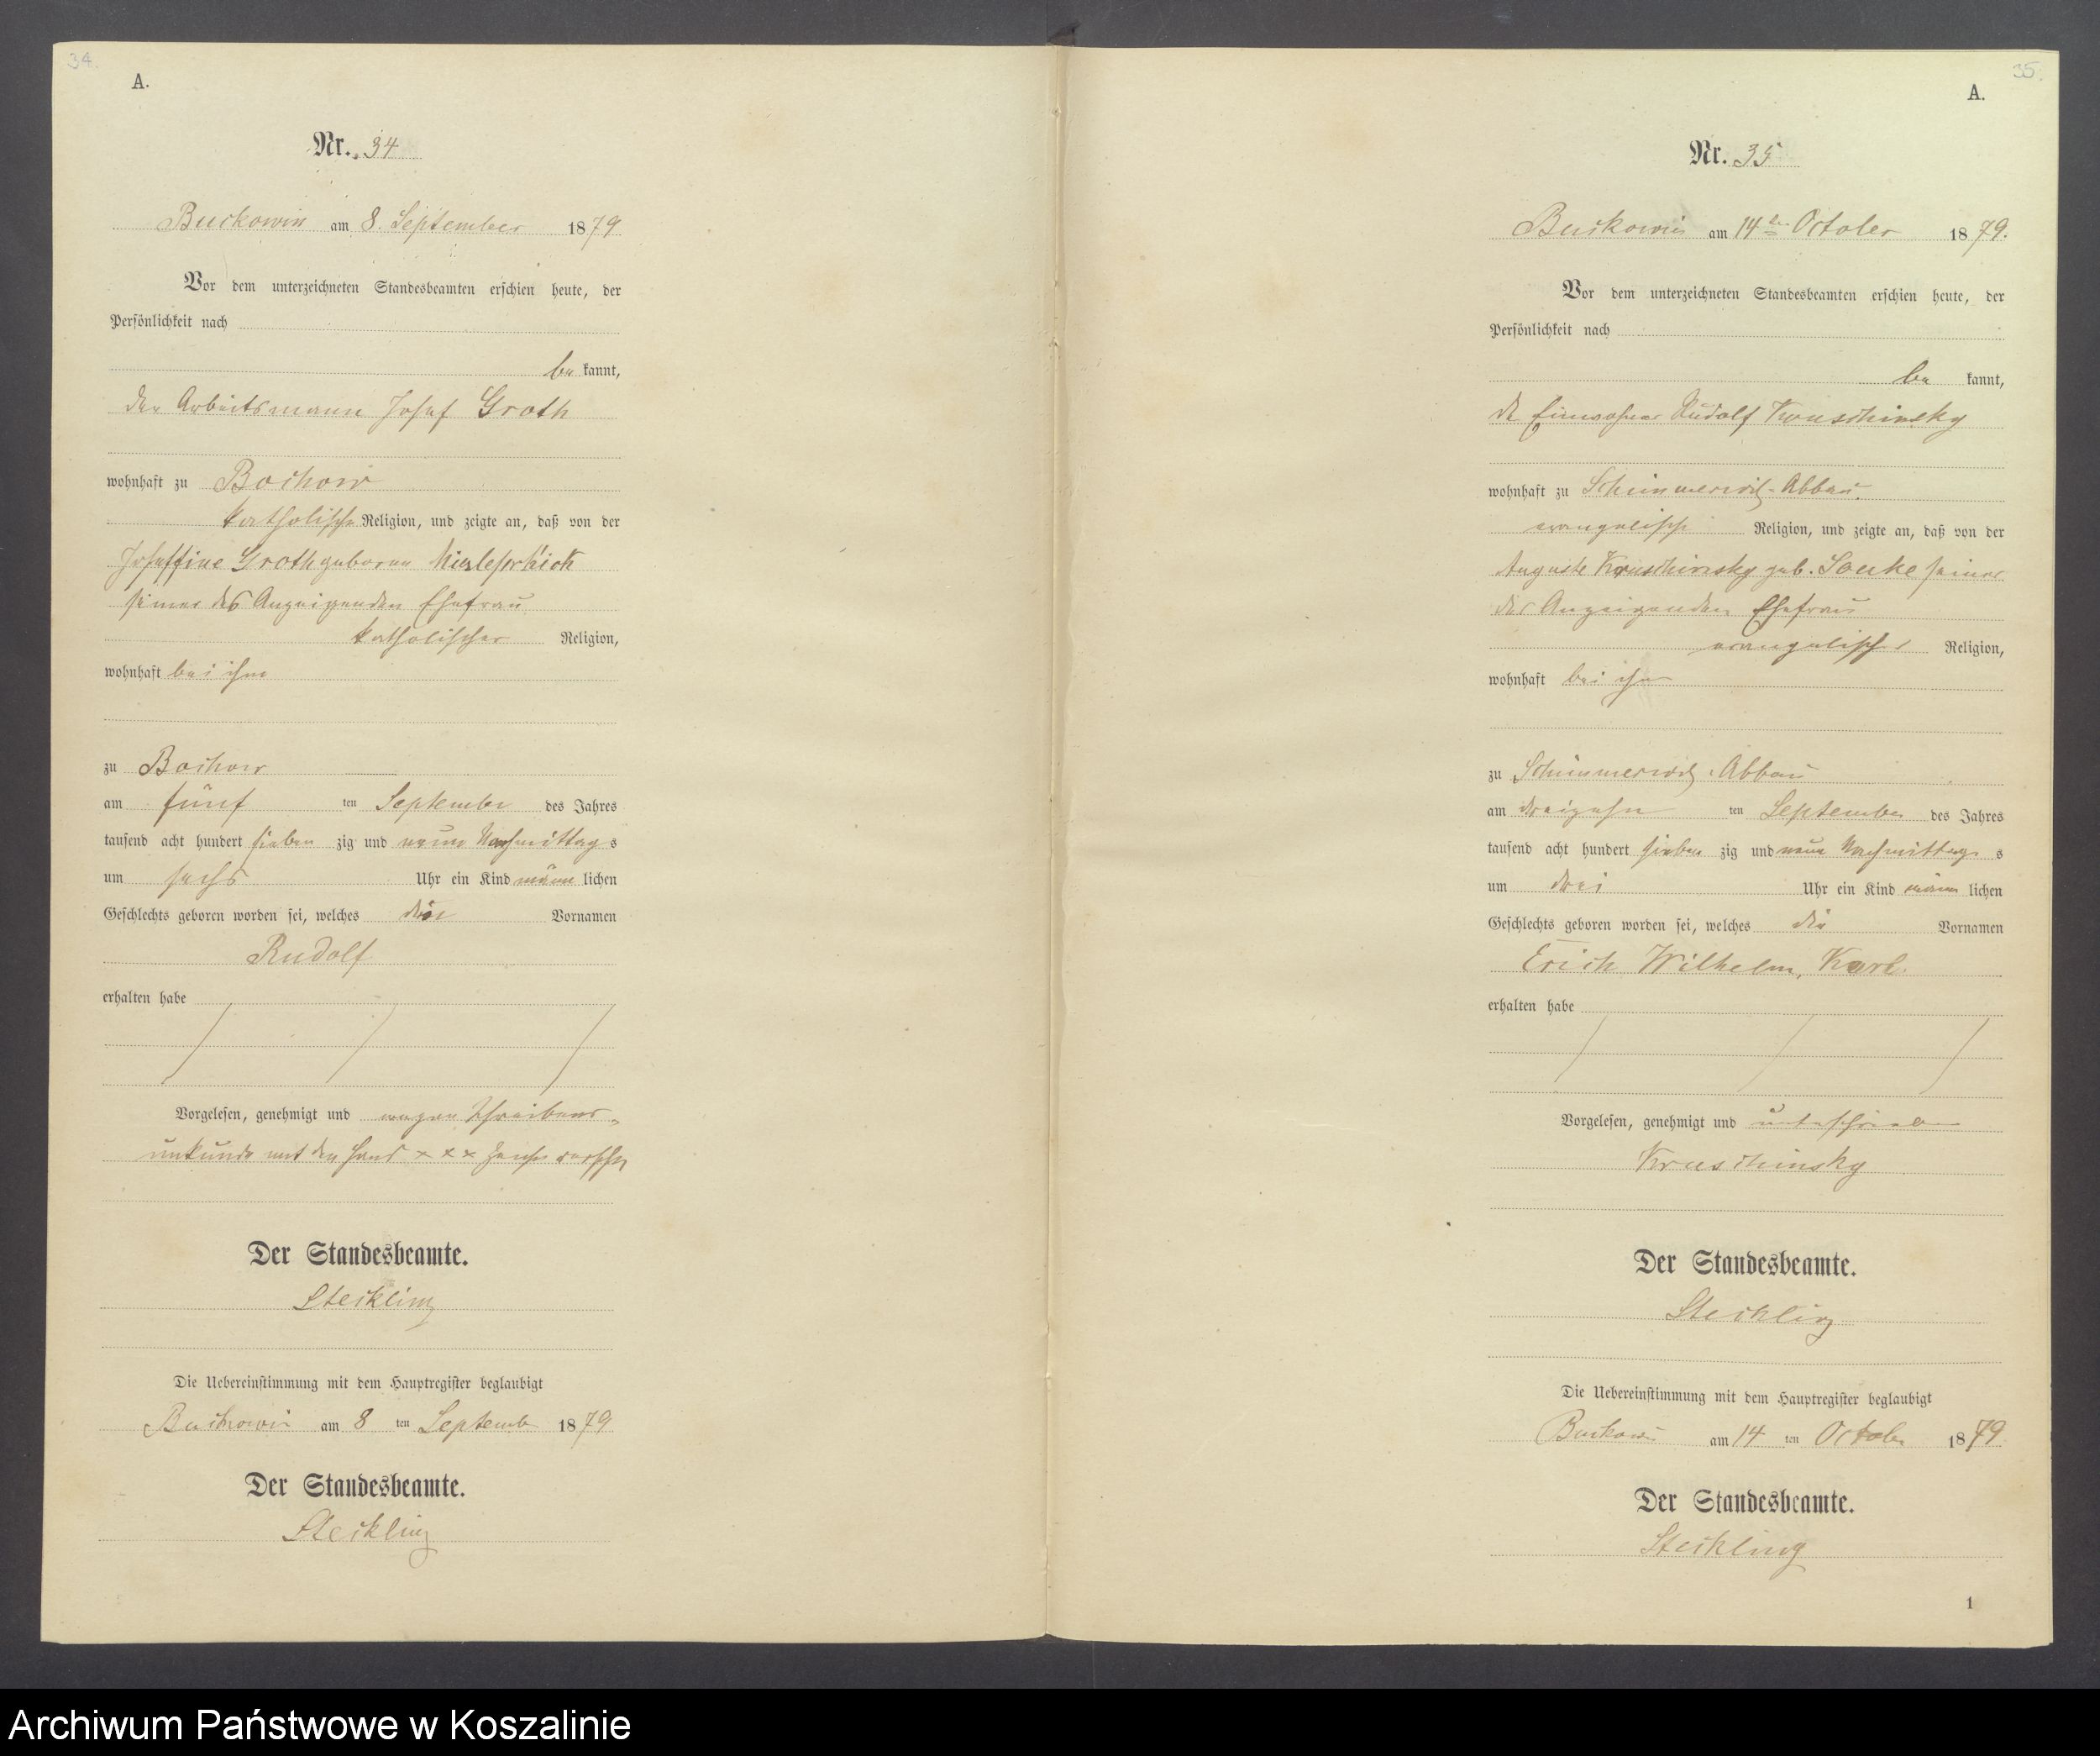 34.
A.
Nr. 34
Buckowin am 8. September 1879
Vor dem unterzeichneten Standesbeamten erschien heute, der
Persönlichkeit nach
be kannt,
der Arbeitsmann Josef Groth
wohnhaft zu Bochow
katholischer Religion, und zeigte an, daß von der
Joseffine Groth geborene
seiner des Anzeigenden Ehefrau
katholischer Religion,
wohnhaft bei ihm
zu Bochow
am fünf ten September des Jahres
tausend acht hundert sieben zig und neun Nachmittag s
um sechs Uhr ein Kind männ lichen
Geschlechts geboren worden sei, welches Vornamen
Rudolf
erhalten habe
Vorgelesen, genehmigt und wegen Schreibens-
unkunde mit den Hand x x x
Der Standesbeamte.
Steckling
Die Uebereinstimmung mit dem Hauptregister beglaubigt
Buckowin am 8 ten September 1879
Der Standesbeamte.
Steckling
35.
A.
Nr. 35
Buckowin am 14ten October 1879.
Vor dem unterzeichneten Standesbeamten erschien heute, der
Persönlichkeit nach
be kannt,
der Einwohner Rudolf Kruschinsky
wohnhaft zu Schimmerwitz-Abbau.
evangelischer Religion, und zeigte an, daß von der
Auguste Kruschinsky geb. seiner
des Anzeigenden Ehefrau
evangelischer Religion,
wohnhaft bei ihm
zu Schimmerwitz-Abbau
am dreizehn ten September des Jahres
tausend acht hundert sieben zig und neun Nachmittag s
um drei Uhr ein Kind männ lichen
Geschlechts geboren worden sei, welches die Vornamen
Erich Wilhelm, Karl.
erhalten habe
Vorgelesen, genehmigt und unterschrieben
Kruschinsky
Der Standesbeamte.
Steckling
Die Uebereinstimmung mit dem Hauptregister beglaubigt
Buckowin am 14 ten October 1879
Der Standesbeamte.
Steckling
1
Archiwum Państwowe w Koszalinie